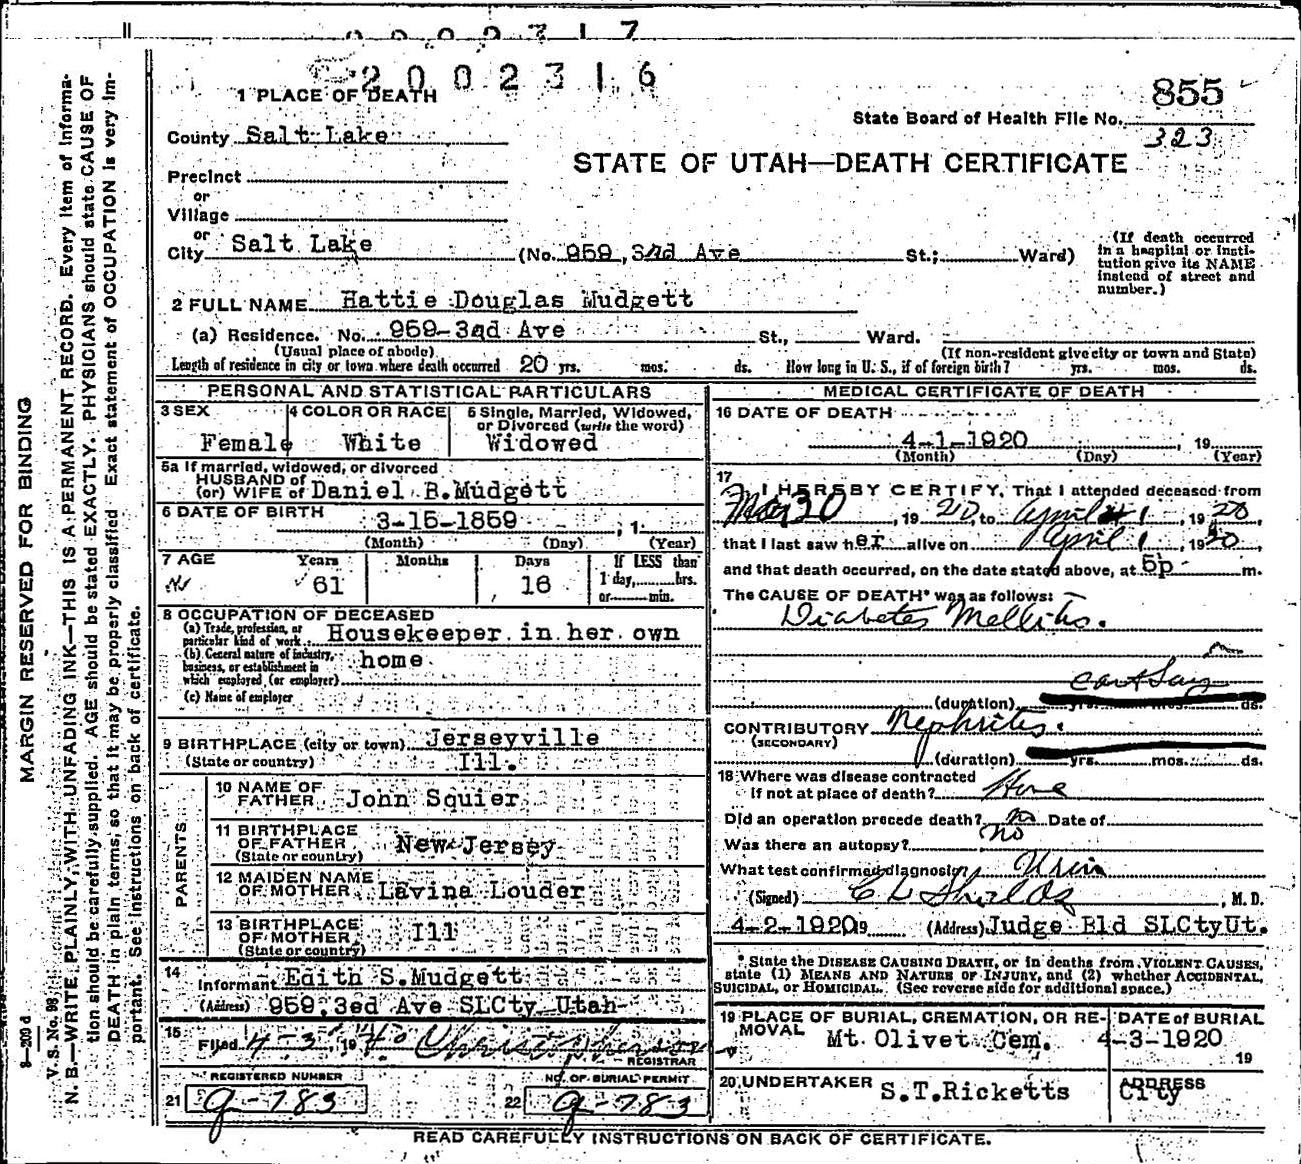 2002316
1 PLACE OF DEATH
855
State Board of Health File No.
323
County Salt Lake
STATE OF UTAH—DEATH CERTIFICATE
Precinct
or
Village
or
City Salt Lake (No. 959, 3rd Ave St.; Ward)
(If death occurred in a hospital or institution give its NAME instead of street and number.)
2 FULL NAME Hattie Douglas Mudgett
(a) Residence. No. 959-3rd Ave St., Ward.
(Usual place of abode) (If non-resident give city or town and State)
Length of residence in city or town where death occurred 20 yrs. mos. ds. How long in U. S., if of foreign birth? yrs. mos. ds.
PERSONAL AND STATISTICAL PARTICULARS
3 SEX Female
4 COLOR OR RACE White
5 Single, Married, Widowed, or Divorced (write the word) Widowed
5a If married, widowed, or divorced
HUSBAND of
(or) WIFE of Daniel B. Mudgett
6 DATE OF BIRTH 3-15-1859, 1
(Month) (Day) (Year)
7 AGE Years 61 Months Days 16 If LESS than 1 day, hrs. or min.
8 OCCUPATION OF DECEASED
(a) Trade, profession, or particular kind of work Housekeeper in her own
(b) General nature of industry, business, or establishment in which employed (or employer) home
(c) Name of employer
9 BIRTHPLACE (city or town) Jerseyville
(State or country) Ill.
PARENTS
10 NAME OF FATHER John Squier
11 BIRTHPLACE OF FATHER (State or country) New Jersey
12 MAIDEN NAME OF MOTHER Lavina Louder
13 BIRTHPLACE OF MOTHER (State or country) Ill
14
Informant Edith S. Mudgett
(Address) 959 3ed Ave SLCty Utah
15
Filed 4-3, 19
REGISTRAR
REGISTERED NUMBER
21 g-783
NO. OF BURIAL PERMIT
22 g-783
MEDICAL CERTIFICATE OF DEATH
16 DATE OF DEATH
4-1-1920, 19
(Month) (Day) (Year)
17 I HEREBY CERTIFY, That I attended deceased from
Mar 30, 1920, to April 1, 1920,
that I last saw her alive on April 1, 1920,
and that death occurred, on the date stated above, at 5p m.
The CAUSE OF DEATH* was as follows:
Diabetes Mellitus.
cant say
(duration) yrs. mos. ds.
CONTRIBUTORY Nephritis.
(SECONDARY)
(duration) yrs. mos. ds.
18 Where was disease contracted
if not at place of death? Home
Did an operation precede death? no Date of
Was there an autopsy? no
What test confirmed diagnosis? Urin
(Signed) C L Shields, M. D.
4-2-1920 19 (Address) Judge Bld SLCtyUt.
* State the DISEASE CAUSING DEATH, or in deaths from VIOLENT CAUSES, state (1) MEANS AND NATURE OF INJURY, and (2) whether ACCIDENTAL, SUICIDAL, or HOMICIDAL. (See reverse side for additional space.)
19 PLACE OF BURIAL, CREMATION, OR REMOVAL Mt. Olivet Cem.
DATE of BURIAL 4-3-1920 19
20 UNDERTAKER S.T.Ricketts
ADDRESS City
READ CAREFULLY INSTRUCTIONS ON BACK OF CERTIFICATE.
MARGIN RESERVED FOR BINDING
8-209 d
V. S. No. 98
N. B.—WRITE PLAINLY, WITH UNFADING INK—THIS IS A PERMANENT RECORD. Every item of information should be carefully supplied. AGE should be stated EXACTLY. PHYSICIANS should state CAUSE OF DEATH in plain terms, so that it may be properly classified. Exact statement of OCCUPATION is very important. See instructions on back of certificate.